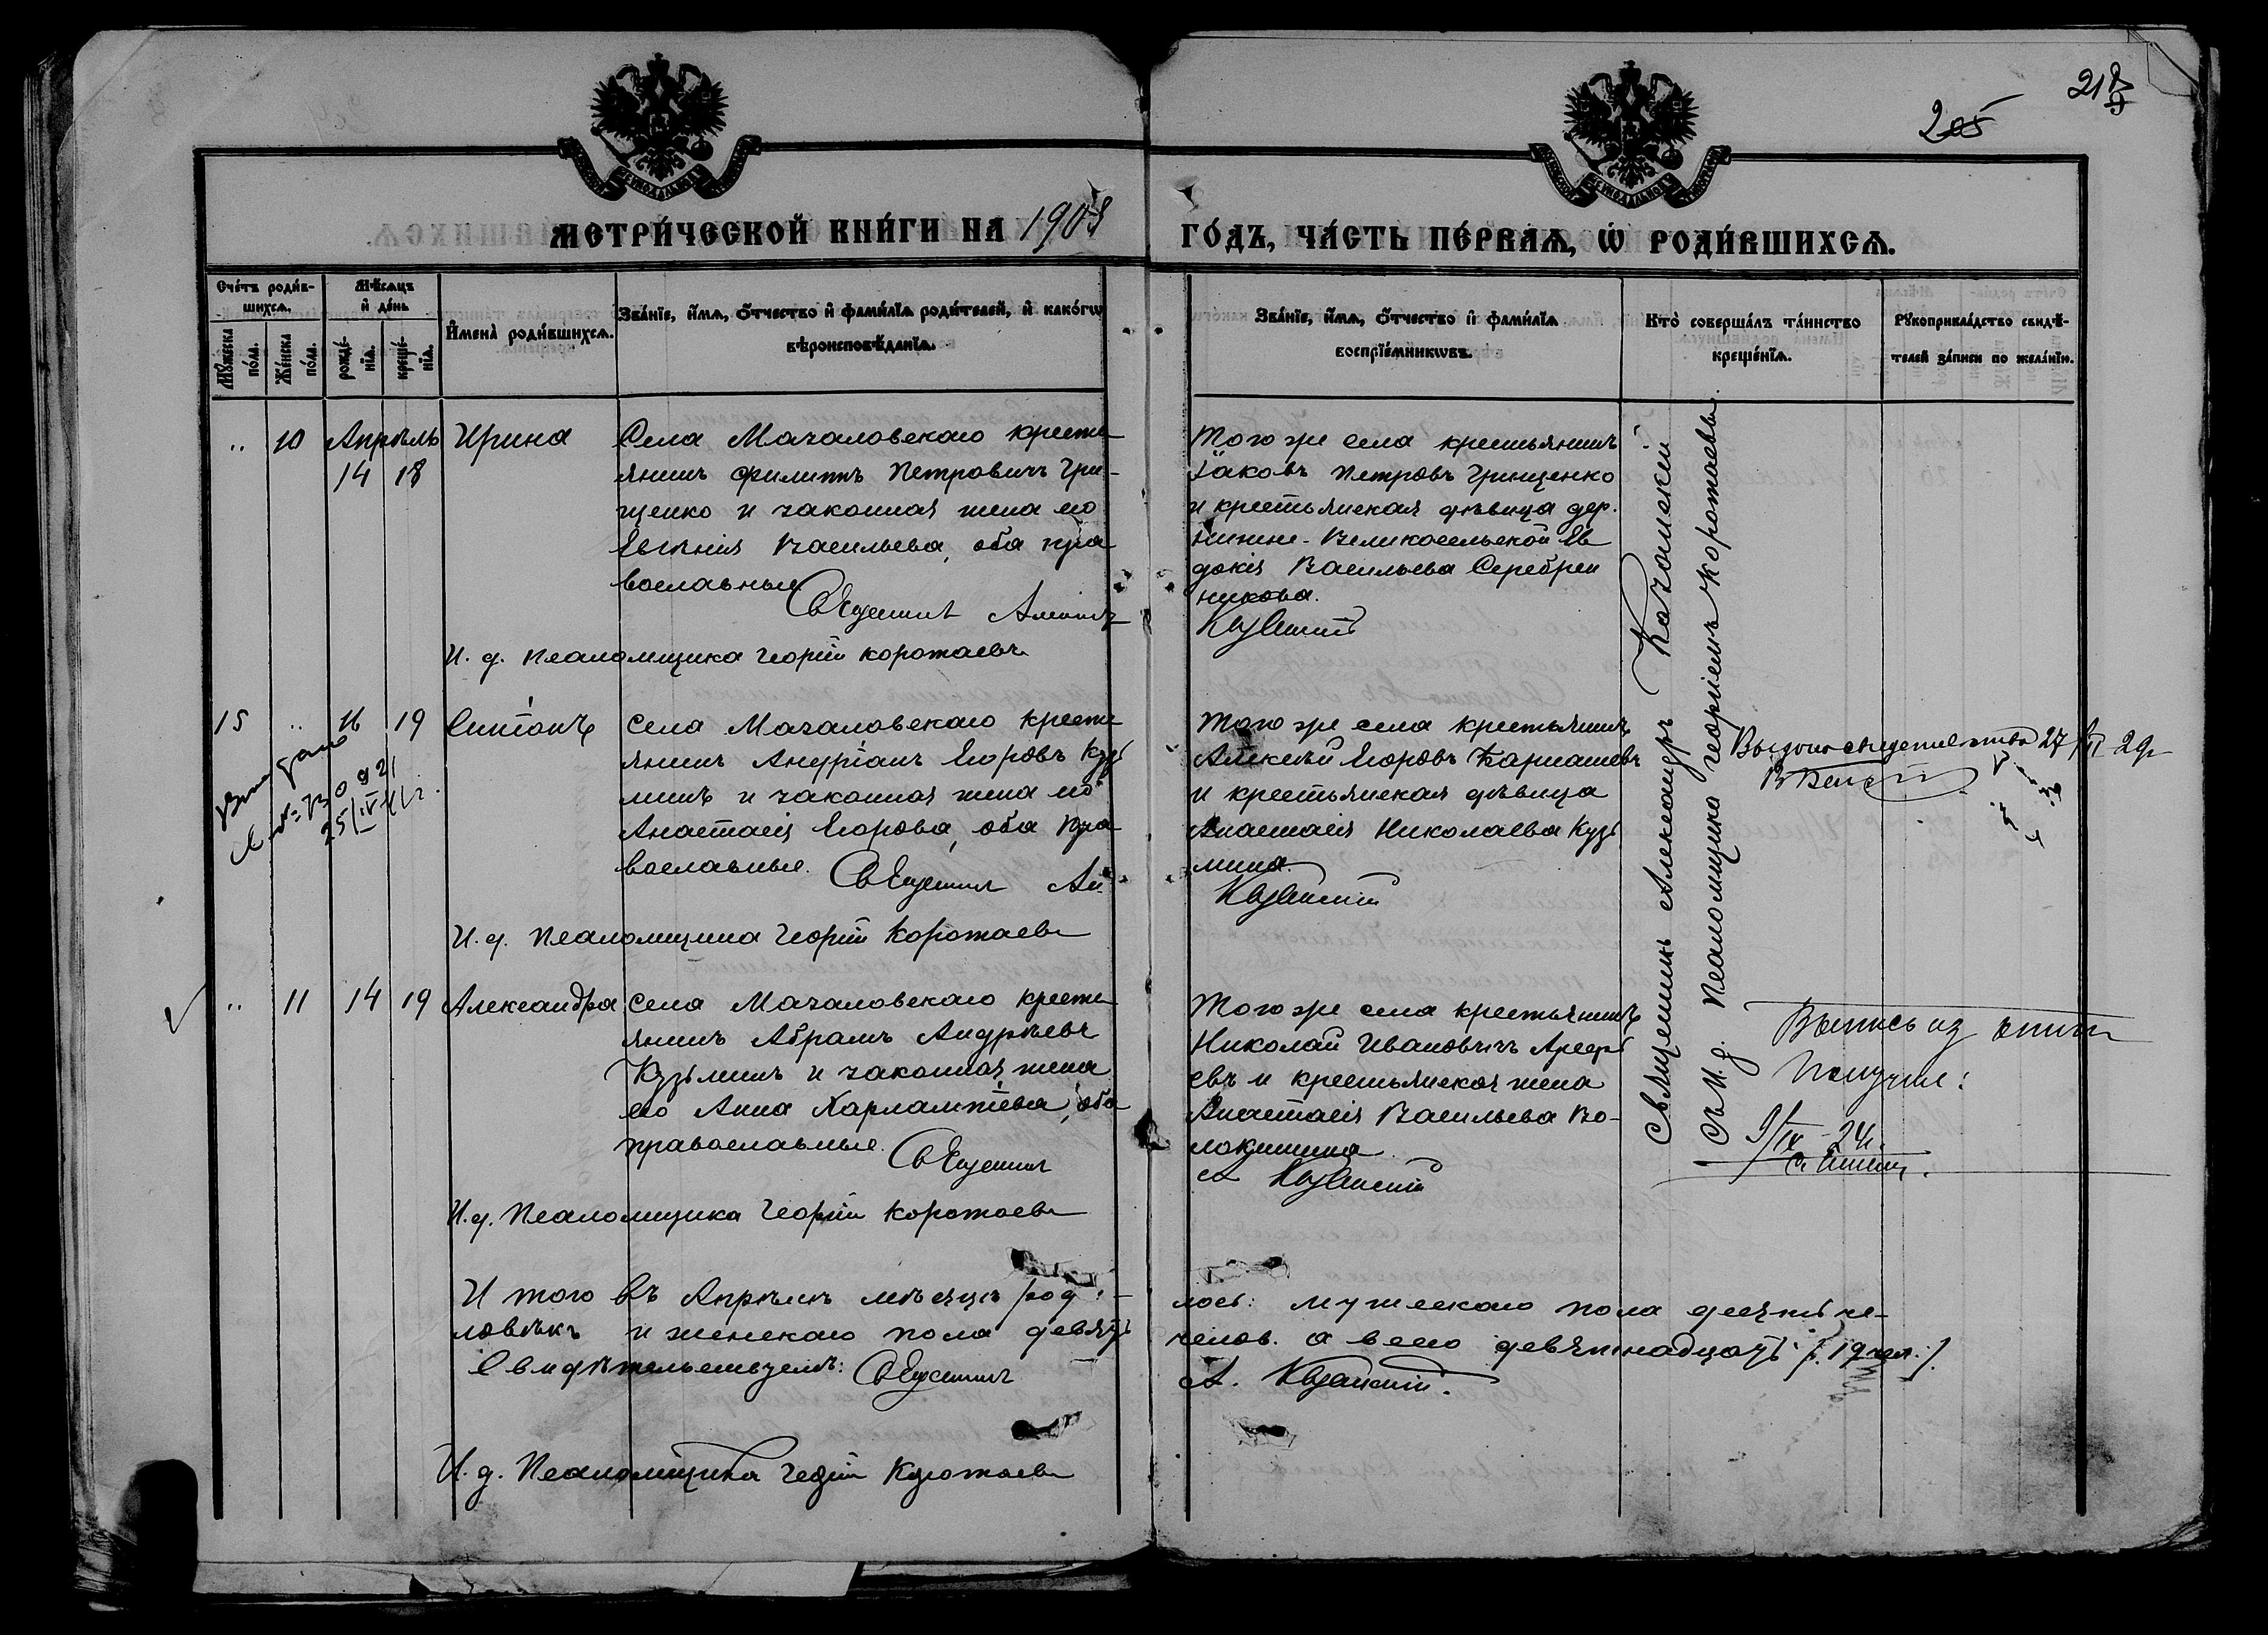 205
218
МЕТРИ́ЧЕСКОЙ КНИ́ГИ НА 1908
ГО́ДЪ, ЧА́СТЬ ПЕ́РВАѦ, Ѡ҆ РОДИ́ВШИХСѦ.
Сче́тъ роди́в-
шихсѧ.
Мꙋ́жеска
по́ла.
Же́нска
по́ла.
Мѣ́сѧцъ
и҆ де́нь
рожде́-
нїѧ.
креще́-
нїѧ.
И҆мена̀ роди́вшихсѧ.
Зва́нїе, и҆́мѧ, ѻ҆́тчество и҆ фами́лїѧ роди́телей, и҆ како́гѡ
вѣроисповѣ́данїѧ.
Зва́нїе, и҆́мѧ, ѻ҆́тчество и҆ фами́лїѧ
воспрїе́мникѡвъ.
Кто̀ соверша́лъ та́инство
креще́нїѧ.
Рꙋкоприкла́дство свидѣ́-
телей за́писи по жела́нїю.
" 10 Апрѣль
14 18
Ирина
Села Мачаловскаго кресть
янинъ Филиппъ Петровичъ Гри-
щенко и законная жена его
Евгенія Васильева, оба пра
вославные
Священникъ
И. д. Псаломщика Георгій Коротаевъ
Того же села крестьянинъ
Іаковъ Петровъ Грищенко
и крестьянская дѣвица дер.
Нижне-Великосельской Ев
докія Васильева Серебрен
никова.
15 " 16 19
Антонъ
Села Мачаловскаго кресть
янинъ Андріанъ Егоровъ Кузь
минъ и законная жена его
Анастасія Егорова, оба пра-
вославные.
Священникъ Ал.
И. д. Псаломщика Георгій Коротаевъ
25/IV
Того же села крестьянинъ
Алексѣй Егоровъ Карташевъ
и крестьянская дѣвица
Анастасія Николаева Кузь
мина.
Выдано свидетельство 27/
" 11 14 19
Александра
Села Мачаловскаго кресть
янинъ Абрамъ Андрѣевъ
Кузьминъ и законная жена
его Анна Харлампіева, оба
православные.
Священникъ
И. д. Псаломщика Георгій Коротаевъ
Того же села крестьянинъ
Николай Ивановичъ
евъ и крестьянская жена
Анастасія Васильева Во-
локитина
Выпись из книги
Получил:
9/IV - 24г.
Священникъ Александръ
съ И. д. Псаломщика Георгіемъ Коротаевы.
И того въ Апрѣлѣ мѣсяцѣ род лось: мужескаго пола десять че-
ловѣкъ и женскаго пола девять челов. а всего девятнадцать /. 19 чел. /.
Свидѣтельствуемъ: Священникъ А.
И. д. Псаломщика Георгій Коротаевъ